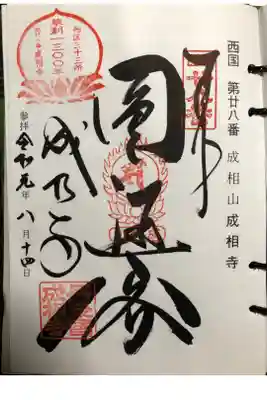 西国 第廿八番 成相山 成相寺
奉拝
圓通閣
成相寺
西国三十三所
草創一三〇〇年
参拝 令和元年 八月十四日